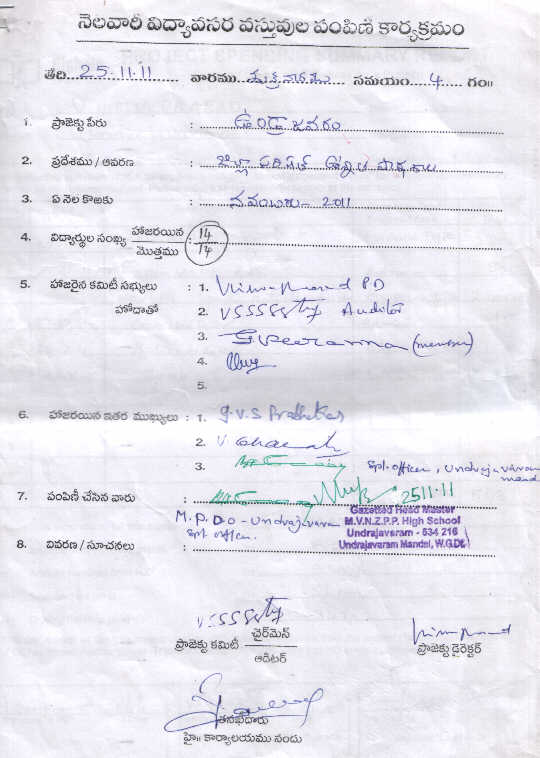 నెలవారీ విద్యావసర వస్తువుల పంపిణీ కార్యక్రమం
తేది 25.11.11 వారము శుక్రవారము సమయం 4 గం॥
1. ప్రాజెక్టు పేరు : ఉండ్రాజవరం
2. ప్రదేశము / ఆవరణ : జిల్లా పరిషత్ ఉన్నత పాఠశాల
3. ఏ నెల కొఱకు : నవంబరు - 2011
4. విద్యార్థుల సంఖ్య హాజరయిన / మొత్తము : 14 / 14
5. హాజరైన కమిటీ సభ్యులు : 1. PD
హోదాతో 2. VSSSSsty Auditor
3. G Veeranna (member)
4.
5.
6. హాజరయిన ఇతర ముఖ్యులు : 1. G.V.S Prabhakar
2. V
3. Spl. officer, Undrajavaram
mandal
7. పంపిణీ చేసిన వారు : 25.11.11
M.P.D.O - Undrajavaram
Spl. officer.
Gazetted Head Master
M.V.N.Z.P.P. High School
Undrajavaram - 534 216
Undrajavaram Mandal, W.G.Dt.
8. వివరణ / సూచనలు :
VSSSSsty
ప్రాజెక్టు కమిటీ ఛైర్‌మెన్ / ఆడిటర్
ప్రాజెక్టు డైరెక్టర్
తనఖీదారు
హై॥ కార్యాలయము నందు